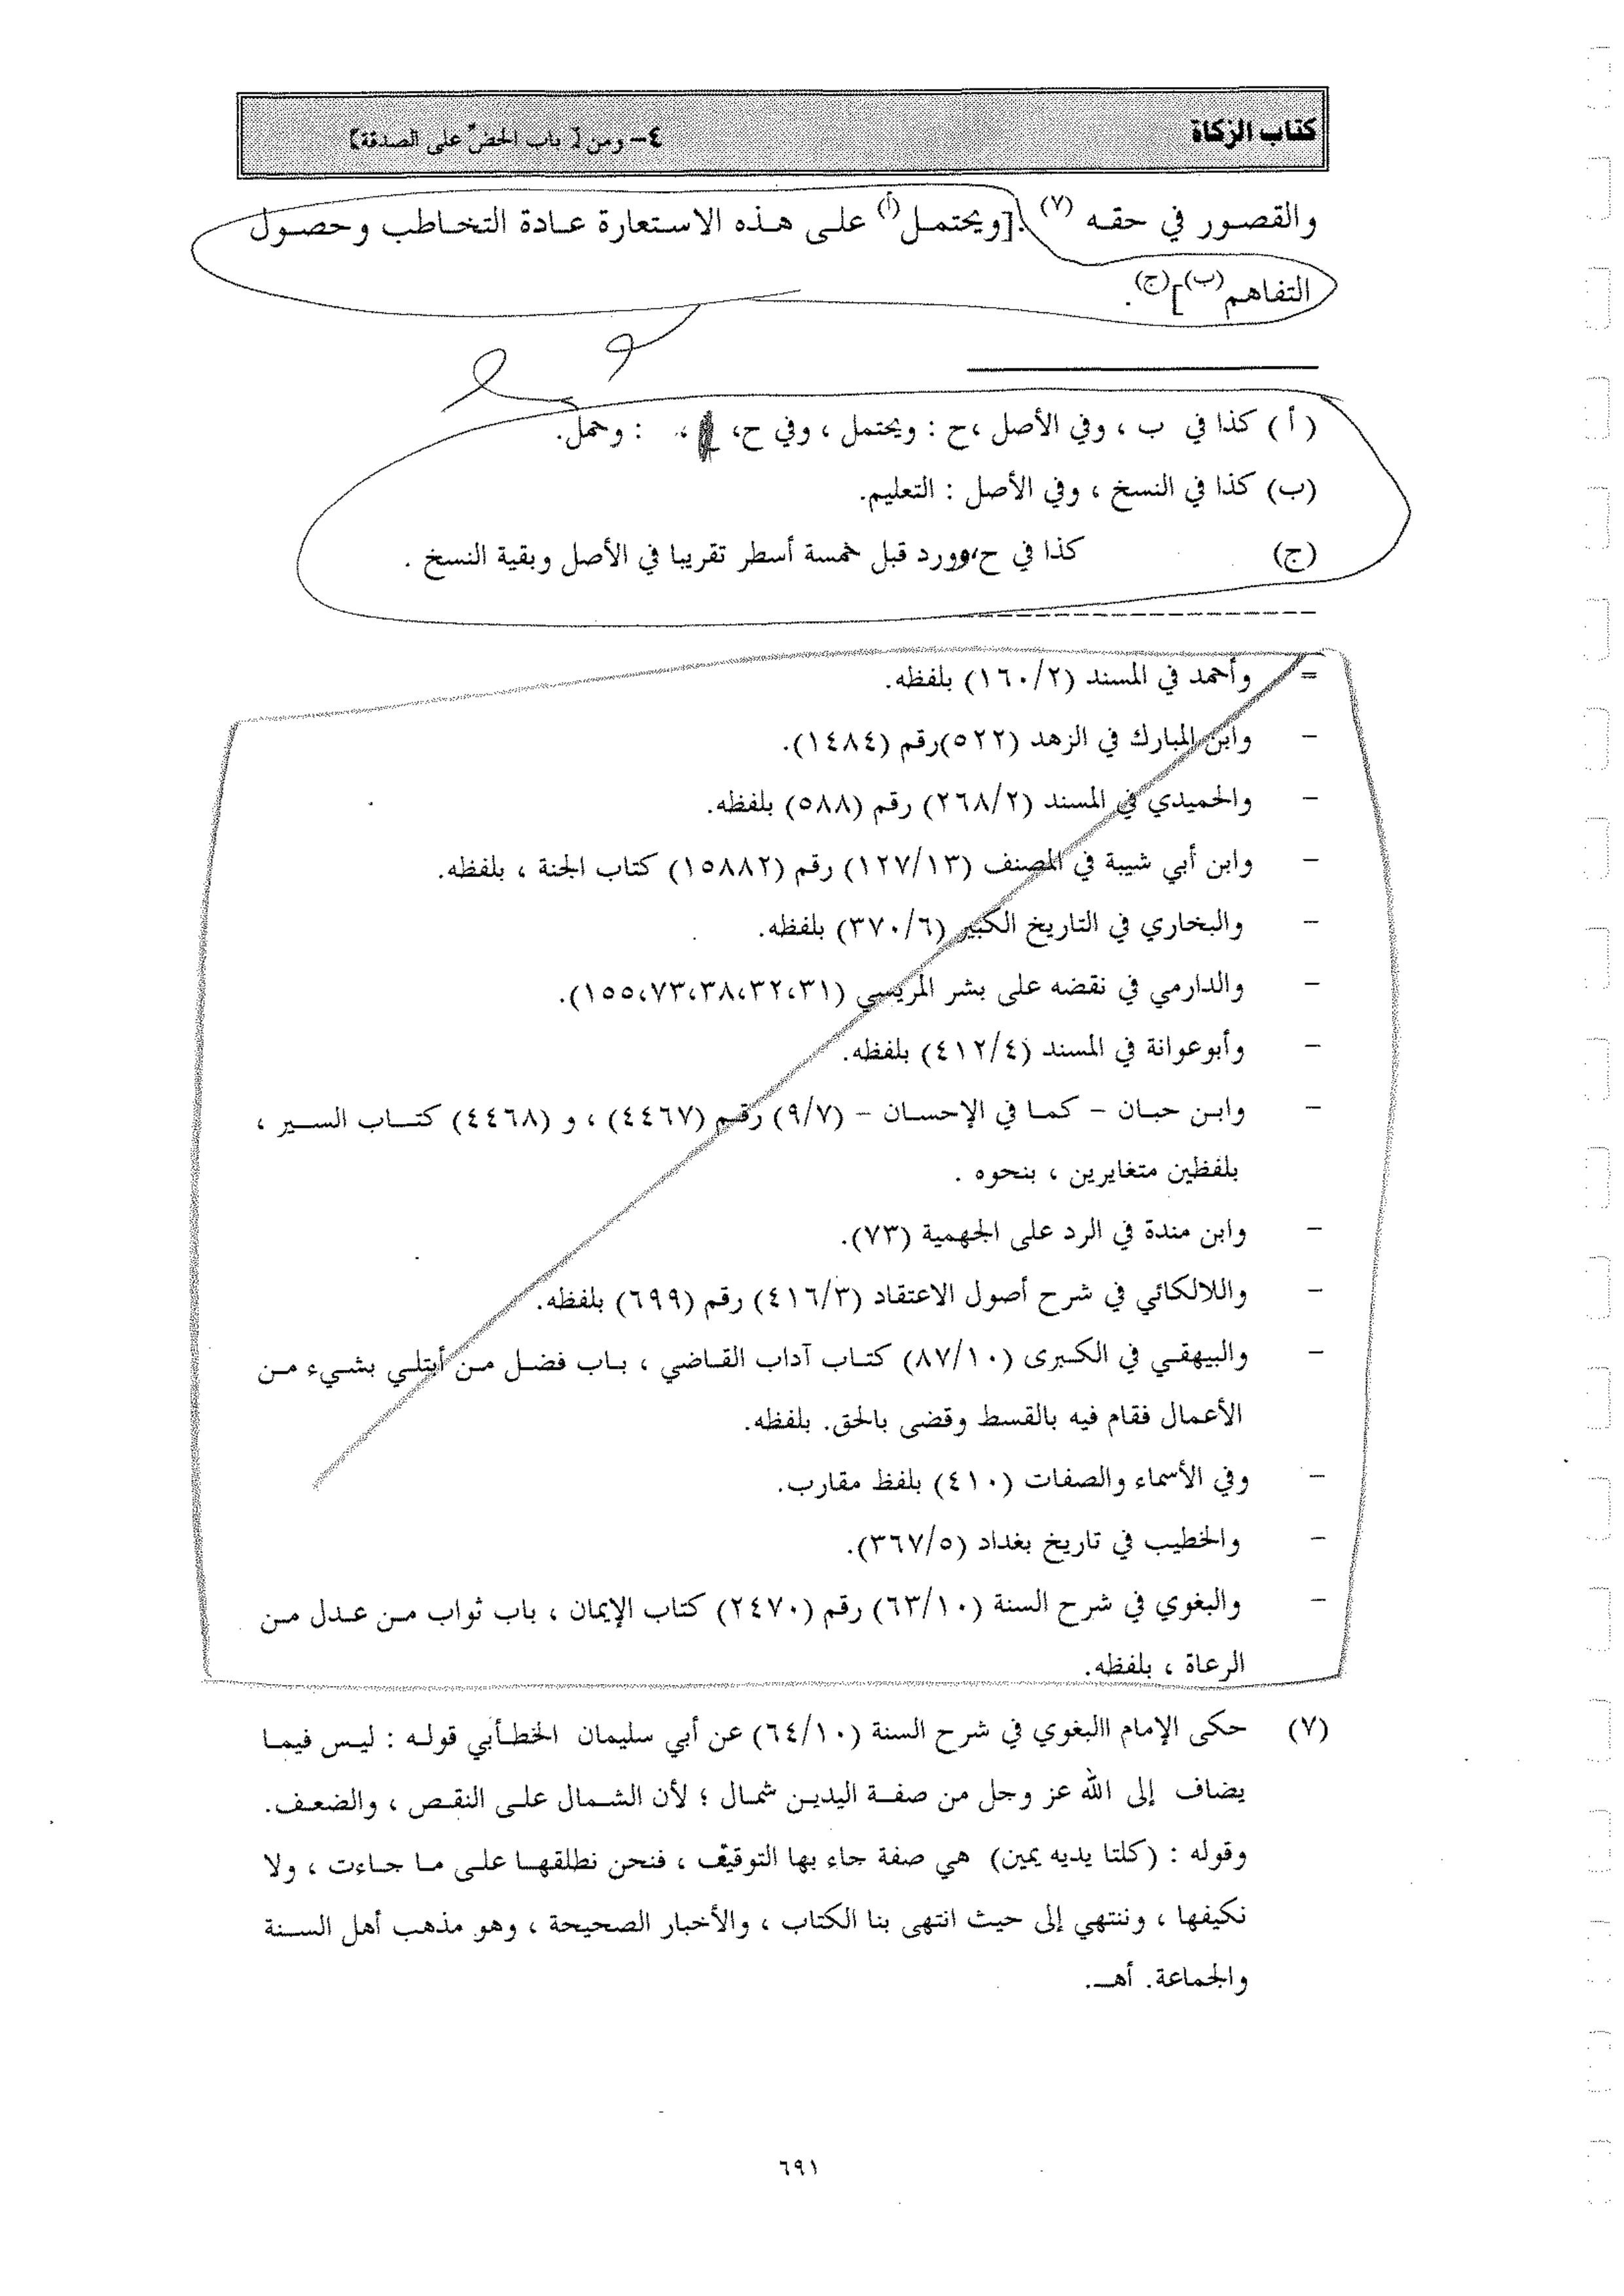 كتاب الزكاة
٤- ومن [ باب الحضّ على الصدقة]
والقصور في حقه (٧) .[ويحتمل(أ) على هذه الاستعارة عادة التخاطب وحصول
التفاهم(ب)](ج).
(أ) كذا في ب ، وفي الأصل ،ح : ويحتمل ، وفي ح، ، : وحمل.
(ب) كذا في النسخ ، وفي الأصل : التعليم.
(ج) كذا في ح،وورد قبل خمسة أسطر تقريبا في الأصل وبقية النسخ .
= وأحمد في المسند (١٦٠/٢) بلفظه.
- وابن المبارك في الزهد (٥٢٢)رقم (١٤٨٤).
- والحميدي في المسند (٢٦٨/٢) رقم (٥٨٨) بلفظه.
- وابن أبي شيبة في المصنف (١٢٧/١٣) رقم (١٥٨٨٢) كتاب الجنة ، بلفظه.
- والبخاري في التاريخ الكبير (٣٧٠/٦) بلفظه.
- والدارمي في نقضه على بشر المريسي (٣١،٣٢،٣٨،٧٣،١٥٥).
- وأبوعوانة في المسند (٤١٢/٤) بلفظه.
- وابن حبان - كما في الإحسان - (٩/٧) رقم (٤٤٦٧) ، و (٤٤٦٨) كتاب السير ،
بلفظين متغايرين ، بنحوه .
- وابن مندة في الرد على الجهمية (٧٣).
- واللالكائي في شرح أصول الاعتقاد (٤١٦/٣) رقم (٦٩٩) بلفظه.
- والبيهقي في الكبرى (٨٧/١٠) كتاب آداب القاضي ، باب فضل من أبتلي بشيء من
الأعمال فقام فيه بالقسط وقضى بالحق. بلفظه.
- وفي الأسماء والصفات (٤١٠) بلفظ مقارب.
- والخطيب في تاريخ بغداد (٣٦٧/٥).
- والبغوي في شرح السنة (٦٣/١٠) رقم (٢٤٧٠) كتاب الإيمان ، باب ثواب من عدل من
الرعاة ، بلفظه.
(٧) حكى الإمام االبغوي في شرح السنة (٦٤/١٠) عن أبي سليمان الخطأبي قوله : ليس فيما
يضاف إلى الله عز وجل من صفة اليدين شمال ؛ لأن الشمال على النقص ، والضعف.
وقوله : (كلتا يديه يمين) هي صفة جاء بها التوقيف ، فنحن نطلقها على ما جاءت ، ولا
نكيفها ، وننتهي إلى حيث انتهى بنا الكتاب ، والأخبار الصحيحة ، وهو مذهب أهل السنة
والجماعة. أهـ.
٦٩١